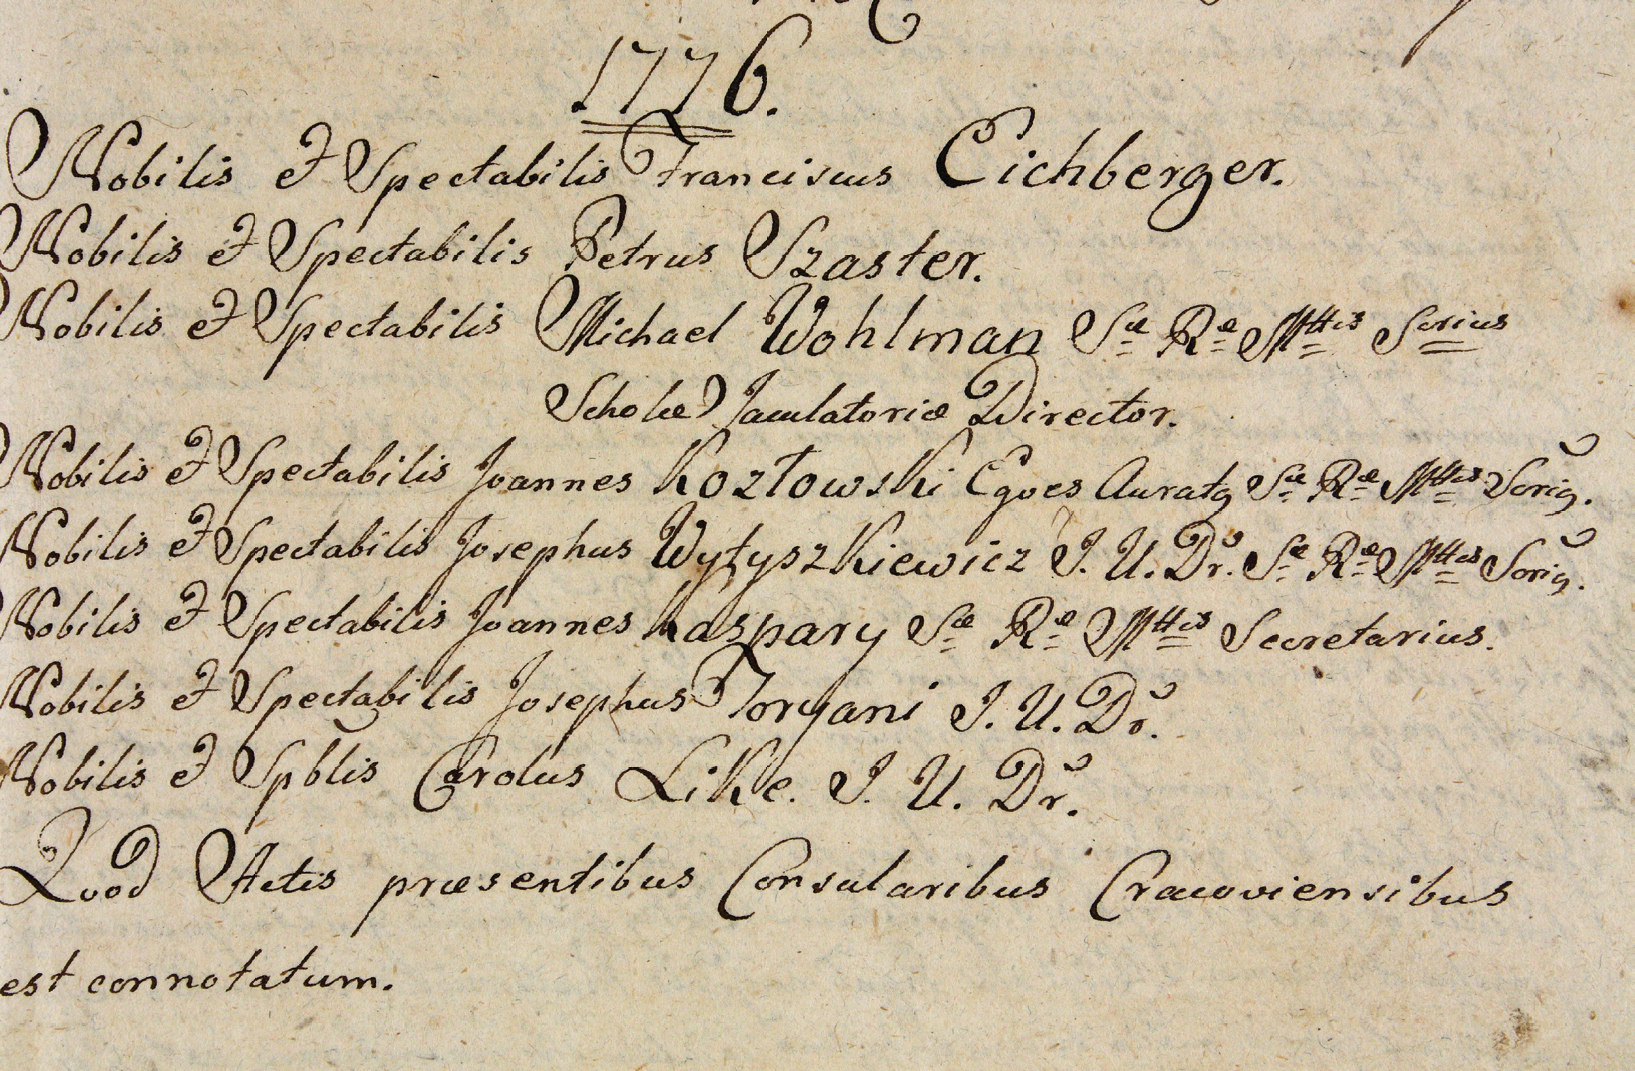 1776.
Nobilis et Spectabilis Franciscus Eichberger.
Nobilis et Spectabilis Petrus Szaster.
Nobilis et Spectabilis Michael Wohlman Sæ Ræ Mttis Scrius
Scholæ Jaculatoriæ Director.
Nobilis et Spectabilis Joannes Kozłowski Eques Auratq Sæ Ræ Mttis Scriq.
Nobilis et Spectabilis Josephus Wytyszkiewicz J. U. Dr. Sæ Ræ Mttis Scriq.
Nobilis et Spectabilis Joannes Kaspary Sæ Ræ Mttis Secretarius.
Nobilis et Spectabilis Josephus Toryani J. U. Dr.
Nobilis et Spblis Carolus Like. J. U. Dr.
Quod Actis præsentibus Consularibus Cracoviensibus
est connotatum.